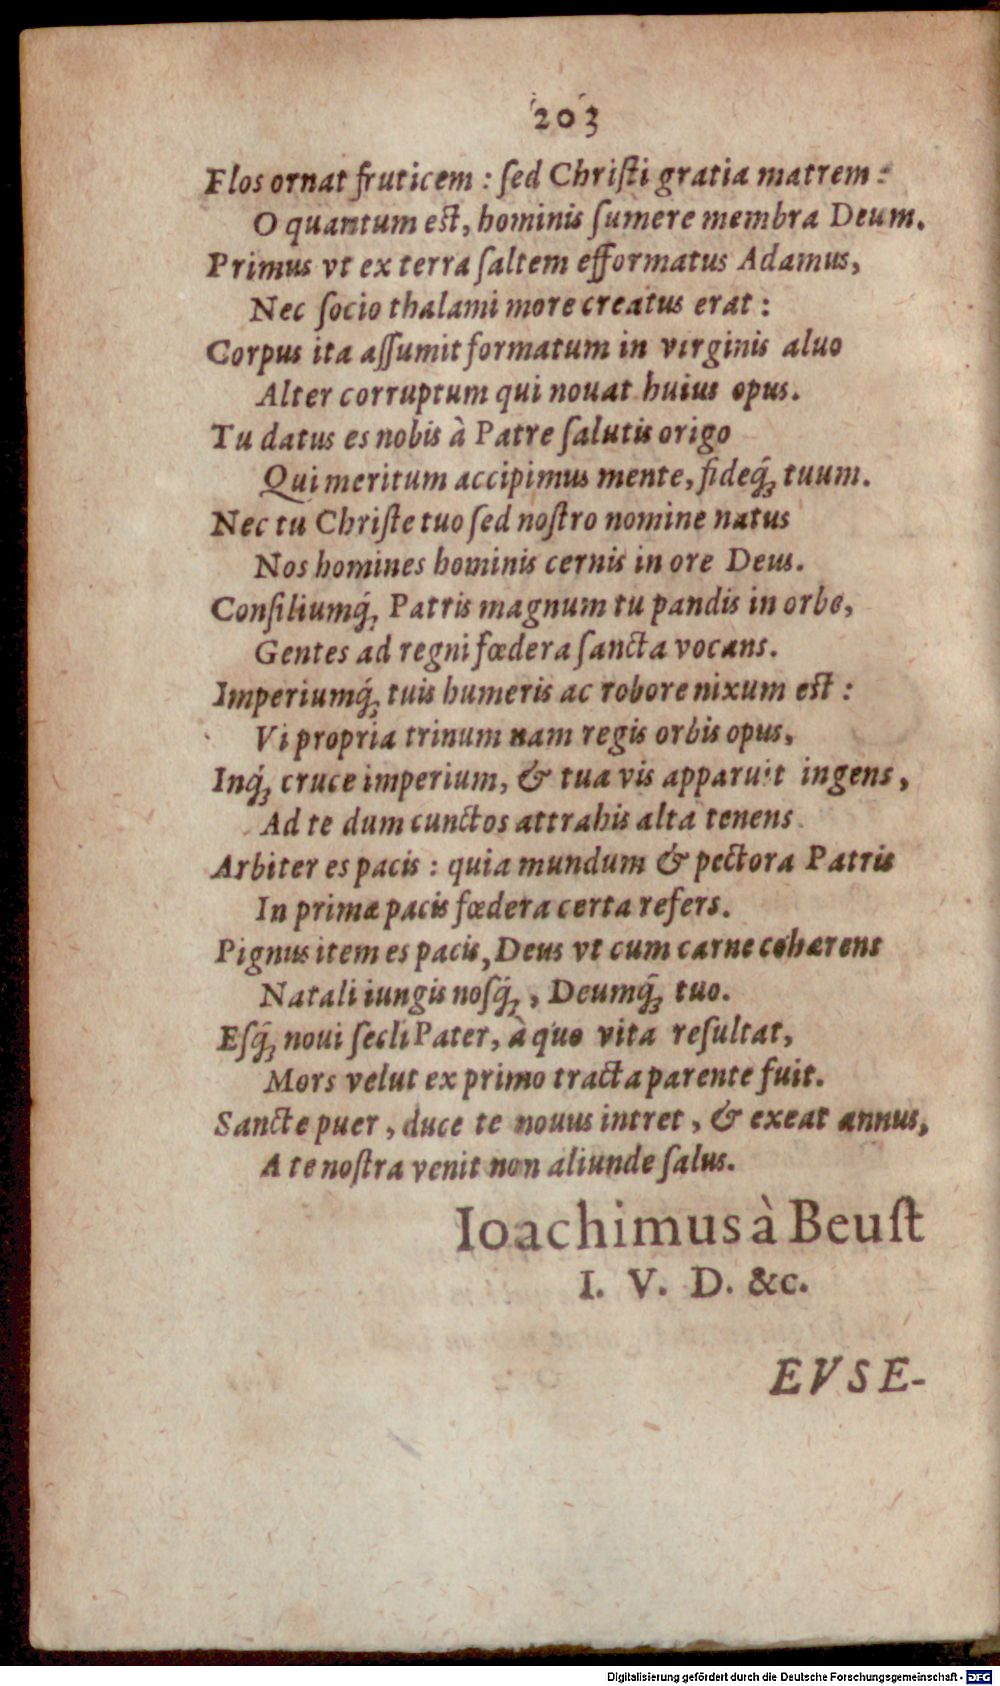 203
Flos ornat fruticem : ſed Chriſti gratia matrem :
O quantum eſt, hominis ſumere membra Deum.
Primus vt ex terra ſaltem efformatus Adamus,
Nec ſocio thalami more creatus erat :
Corpus ita aſſumit formatum in virginis aluo
Alter corruptum qui nouat huius opus.
Tu datus es nobis à Patre ſalutis origo
Qui meritum accipimus mente, fideq́ꝫ tuum.
Nec tu Chriſte tuo ſed noſtro nomine natus
Nos homines hominis cernis in ore Deus.
Conſiliumq́ꝫ Patris magnum tu pandis in orbe,
Gentes ad regni fœdera ſancta vocans.
Imperiumq́ꝫ tuis humeris ac robore nixum eſt :
Vi propria trinum nam regis orbis opus,
Inq́ꝫ cruce imperium, & tua vis apparuit ingens,
Ad te dum cunctos attrahis alta tenens.
Arbiter es pacis : quia mundum & pectora Patris
In primæ pacis fœdera certa refers.
Pignus item es pacis, Deus vt cum carne cohærens
Natali iungis noſq́ꝫ, Deumq́ꝫ tuo.
Eſq́ꝫ noui ſecli Pater, à quo vita reſultat,
Mors velut ex primo tracta parente fuit.
Sancte puer, duce te nouus intret, & exeat annus,
A te noſtra venit non aliunde ſalus.
Ioachimus à Beuſt
I. V. D. &c.
EVSE-
Digitalisierung gefördert durch die Deutsche Forschungsgemeinschaft - DFG